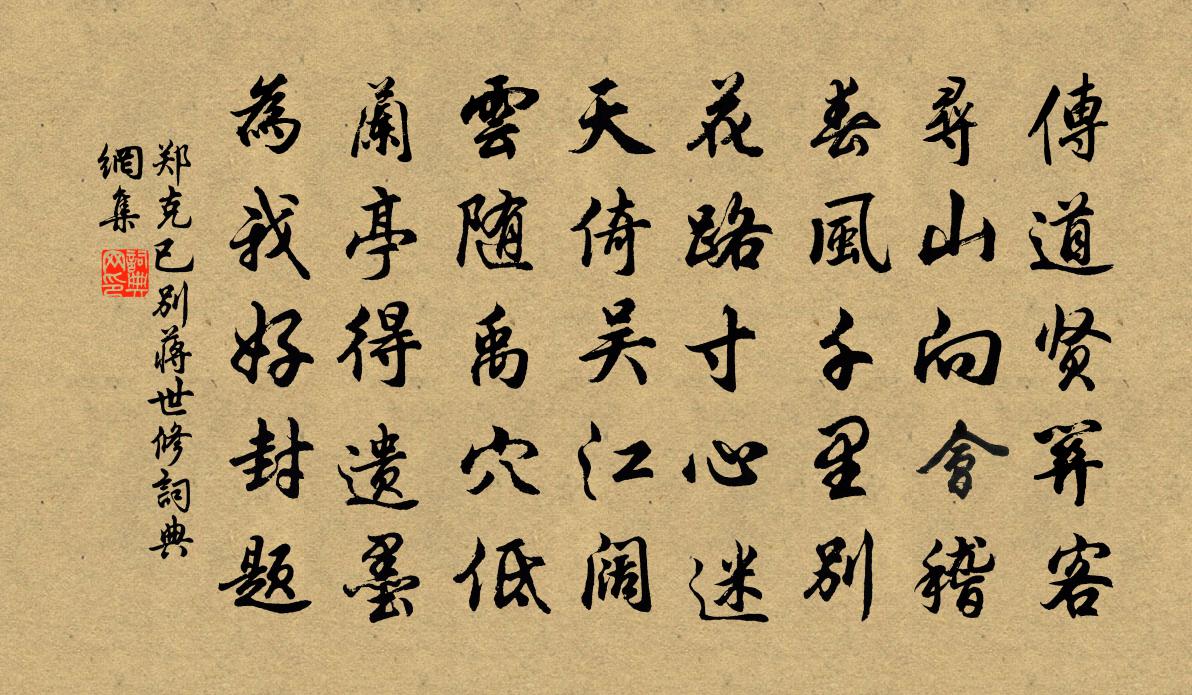 傳道贤关客
尋山向會稽
春風千里别
花路寸心迷
天倚吴江阔
雲随禹穴低
蘭亭得遗墨
為我好封题
郑克已别蒋世修詞典
網集
詞典
网印